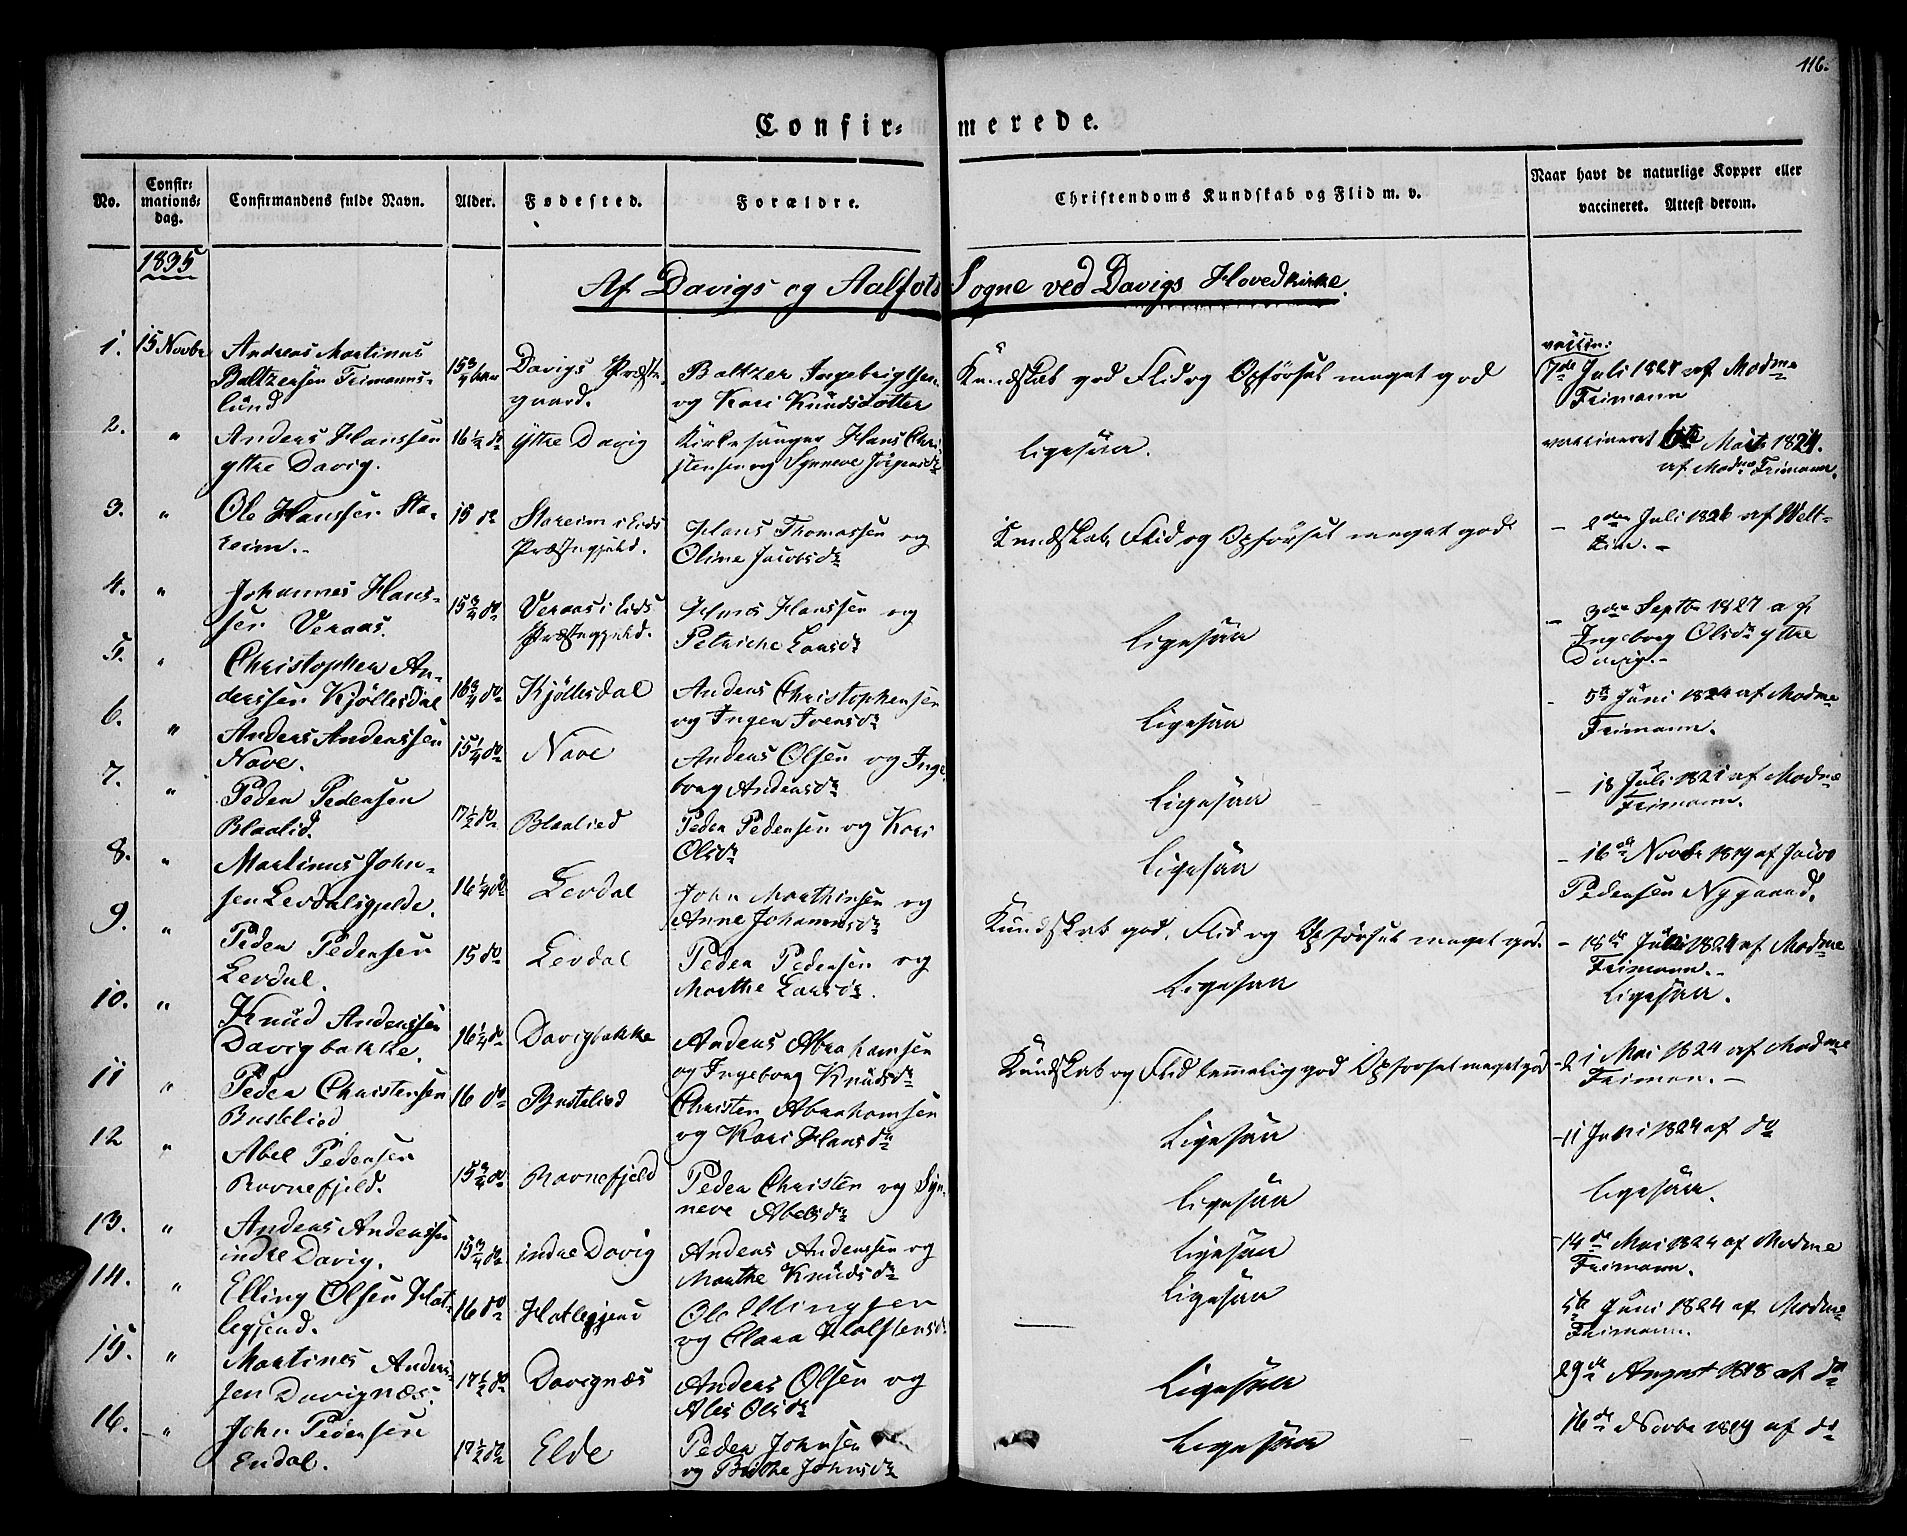 116.
Confirmerede.
No.
Confirmations-dag.
Confirmandens fulde Navn.
Alder.
Fødested.
Forældre.
Christendoms Kundskab og Flid m. v.
Naar havt de naturlige Kopper eller vaccineret. Attest derom.
1835
Af Davigs og Aalfots Sogne ved Davigs Hovedkirke.
1. 15 Novbr
Andreas Martinus
Baltzersen Frimanns-
lund
15 3/4 Aar
Davigs Præste-
gaard.
Baltzer Ingebrigtsen
og Kari Knudsdotter
Kundskab god Flid og Opførsel meget god
vaccin:
7de Juli 1827 af Madme
Frimann
2. "
Anders Hanssen
yttre Davig.
16 1/2 do
Yttre Davig
Kirkesanger Hans Chri
stensen og Synneve Jørgensdr
Ligesaa.
vaccineret 6te Mai 1824.
af Madme Frimann.
3. "
Ole Hanssen Sta-
reim.-
15 do
Stareim i Eids
Præstegjeld.
Hans Thomassen og
Oline Jacobsdr
Kundskab, Flid og Opførsel meget god
- 2den Juli 1826 af Welt-
zin. -
4. "
Johannes Hans-
sen Veraas.
15 3/4 do
Veraas i Eids
Præstegjeld.
Hans Hanssen og
Petriche Larsdr
Ligesaa
- 3die Septbr 1827 af
Ingeborg Olsdr yttre
Davig.-
5. "
Christopher An-
derssen Kjøllesdal
16 3/4 do
Kjøllesdal
Anders Christophersen
og Inger Iversdr
Ligesaa
- 5te Juni 1824 af Madme
Frimann.
6. "
Anders Anderssen
Nave.
15 1/4 do
Nave
Anders Olsen og Inge
borg Andersdr
Ligesaa
- 18 Juli 1821 af Madme
Frimann.
7. "
Peder Pedersen
Blaalid.
17 1/2 do
Blaalied
Peder Pedersen og Kari
Olsdr
Ligesaa
- 16de Novbr 1819 af Jacob
Pedersen Nygaard.
8. "
Martinus John-
sen Levdalsgjelde.
16 1/4 do
Levdal
John Marthinsen og
Anne Johannesdr
Kundskab god, Flid og Opførsel meget god.
- 18de Juli 1824 af Madme
Frimann.-
9. "
Peder Pedersen
Levdal.
15 do
Levdal
Peder Pedersen og
Marthe Larsdr.
Ligesaa
Ligesaa.
10. "
Knud Anderssen
Davigbakke.
16 1/4 do
Davigbakke
Anders Abrahamsen
og Ingeborg Knudsdr
Kundskab og Flid temmelig god Opførsel meget god
- 21 Mai 1824 af Madme
Friman. -
11 "
Peder Christensen
Bustelied.
16 do
Bustelied
Christen Abrahamsen
og Kari Hansdr
Ligesaa
- 11 Juni 1824 af do
12 "
Abel Pedersen
Ravnefjeld.
15 3/4 do
Ravnefjeld
Peder Christen og Syn-
neve Abelsdr
Ligesaa
Ligesaa.
13. "
Anders Anderssen
indre Davig.
15 3/4 do
indre Davig
Anders Anderssen og
Marthe Knudsdr
Ligesaa
- 14de Mai 1824 af Madme
Frimann.
14. "
Elling Olsen Hat-
legjend.
16 do
Hatlegjend
Ole Ellingsen
og Clara Halstensdr
Ligesaa
5te Juni 1824 af Madme
Frimann.
15. "
Martines Anders-
sen Davignæs.
17 1/2 do
Davignæs
Anders Olsen og
Alis Olsdr
Ligesaa
29de August 1818 af do
16. "
John Pedersen
Endal.
17 1/2 do
Elde
Peder Johnsen
og Brithe Johnsdr
Ligesaa
16de Novbr 1819 af do